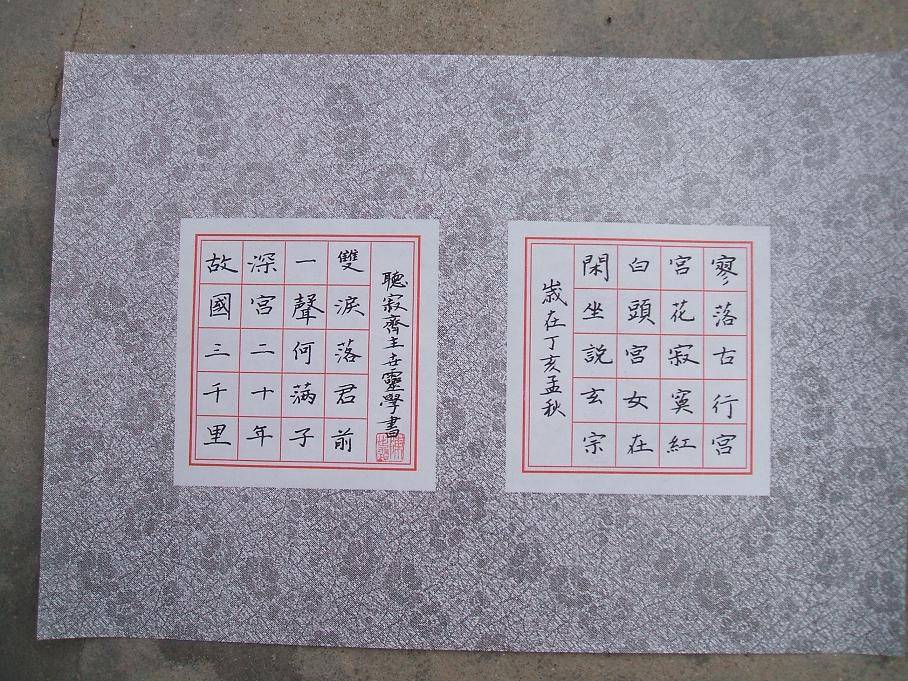 寥落古行宮
宮花寂寞紅
白頭宮女在
閑坐説玄宗
歲在丁亥孟秋
故國三千里
深宮二十年
一聲何滿子
雙淚落君前
聽寂齊主世靈學書